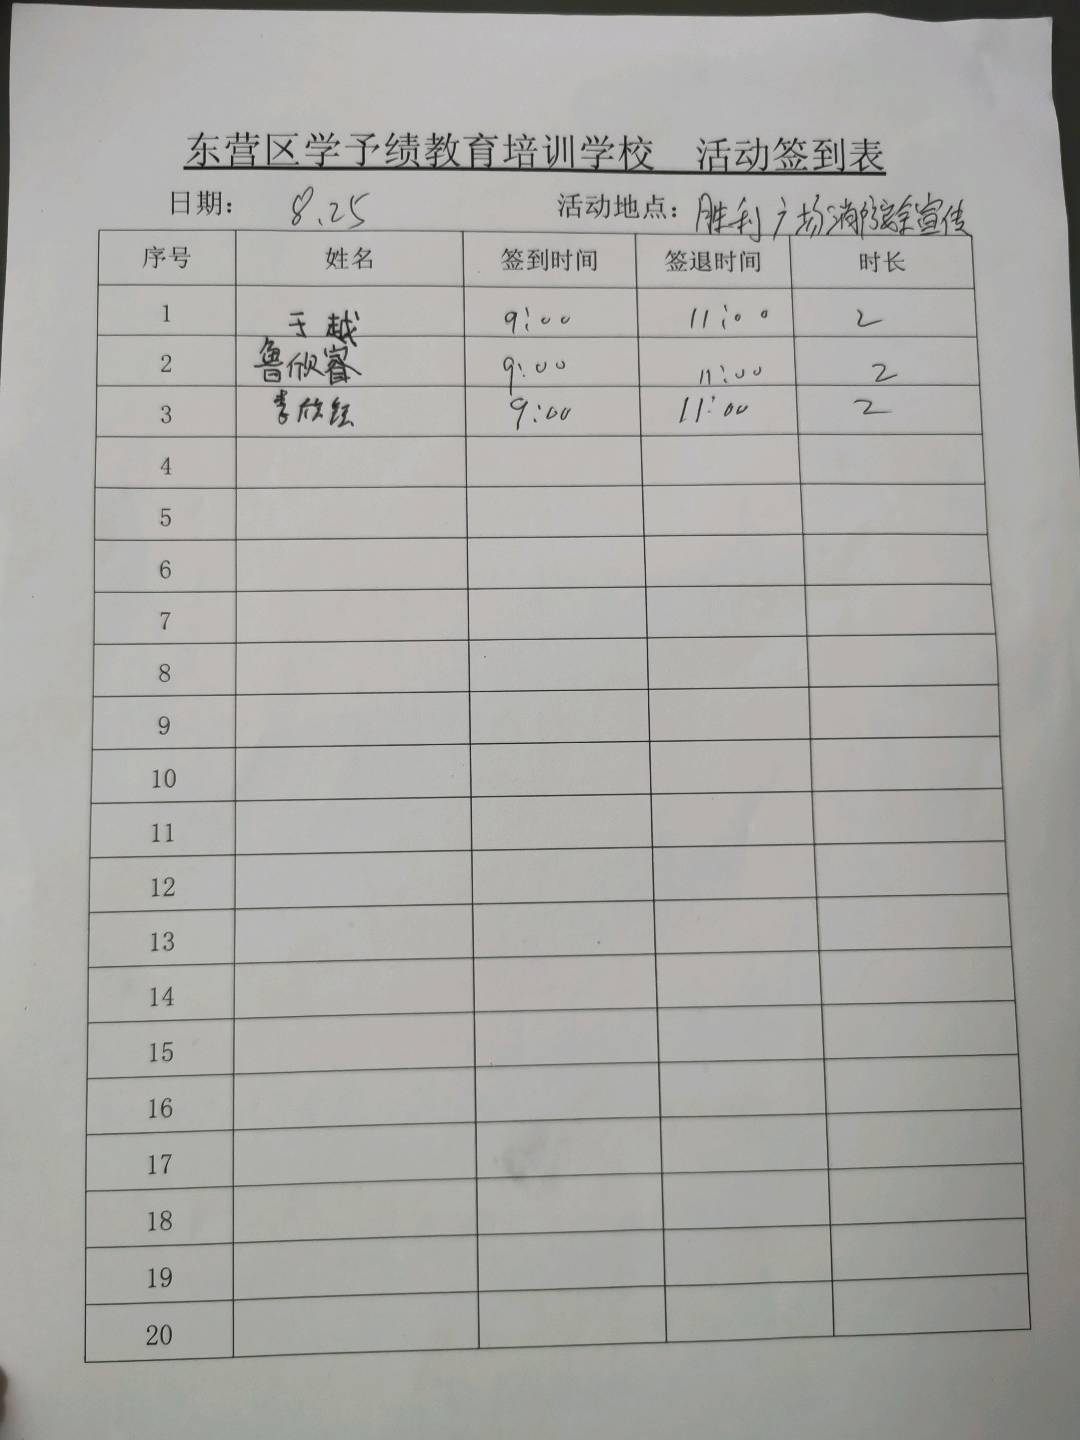 东营区学予绩教育培训学校 活动签到表
日期： 8.25 活动地点：胜利广场消防安全宣传
序号 姓名 签到时间 签退时间 时长
1 于越 9:00 11:00 2
2 鲁欣睿 9:00 11:00 2
3 李欣 9:00 11:00 2
4
5
6
7
8
9
10
11
12
13
14
15
16
17
18
19
20